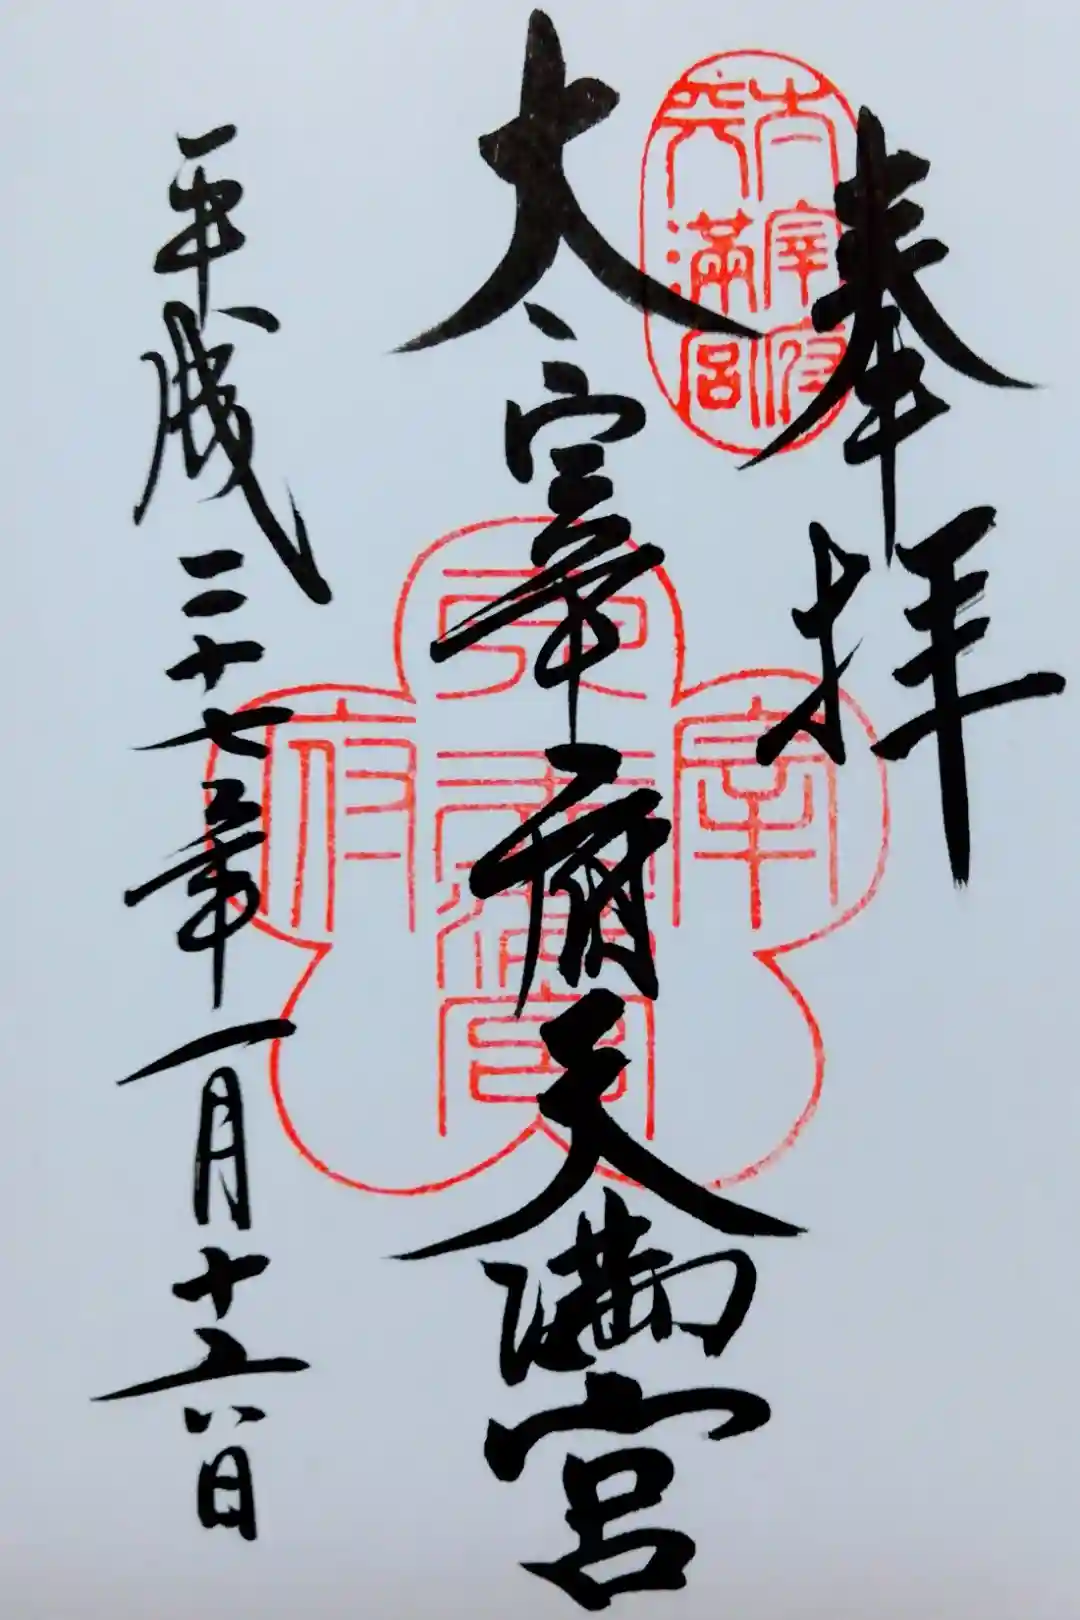 奉拝
太宰府天満宮
平成二十七年一月十六日
太宰府
天満宮
太宰府
天満宮